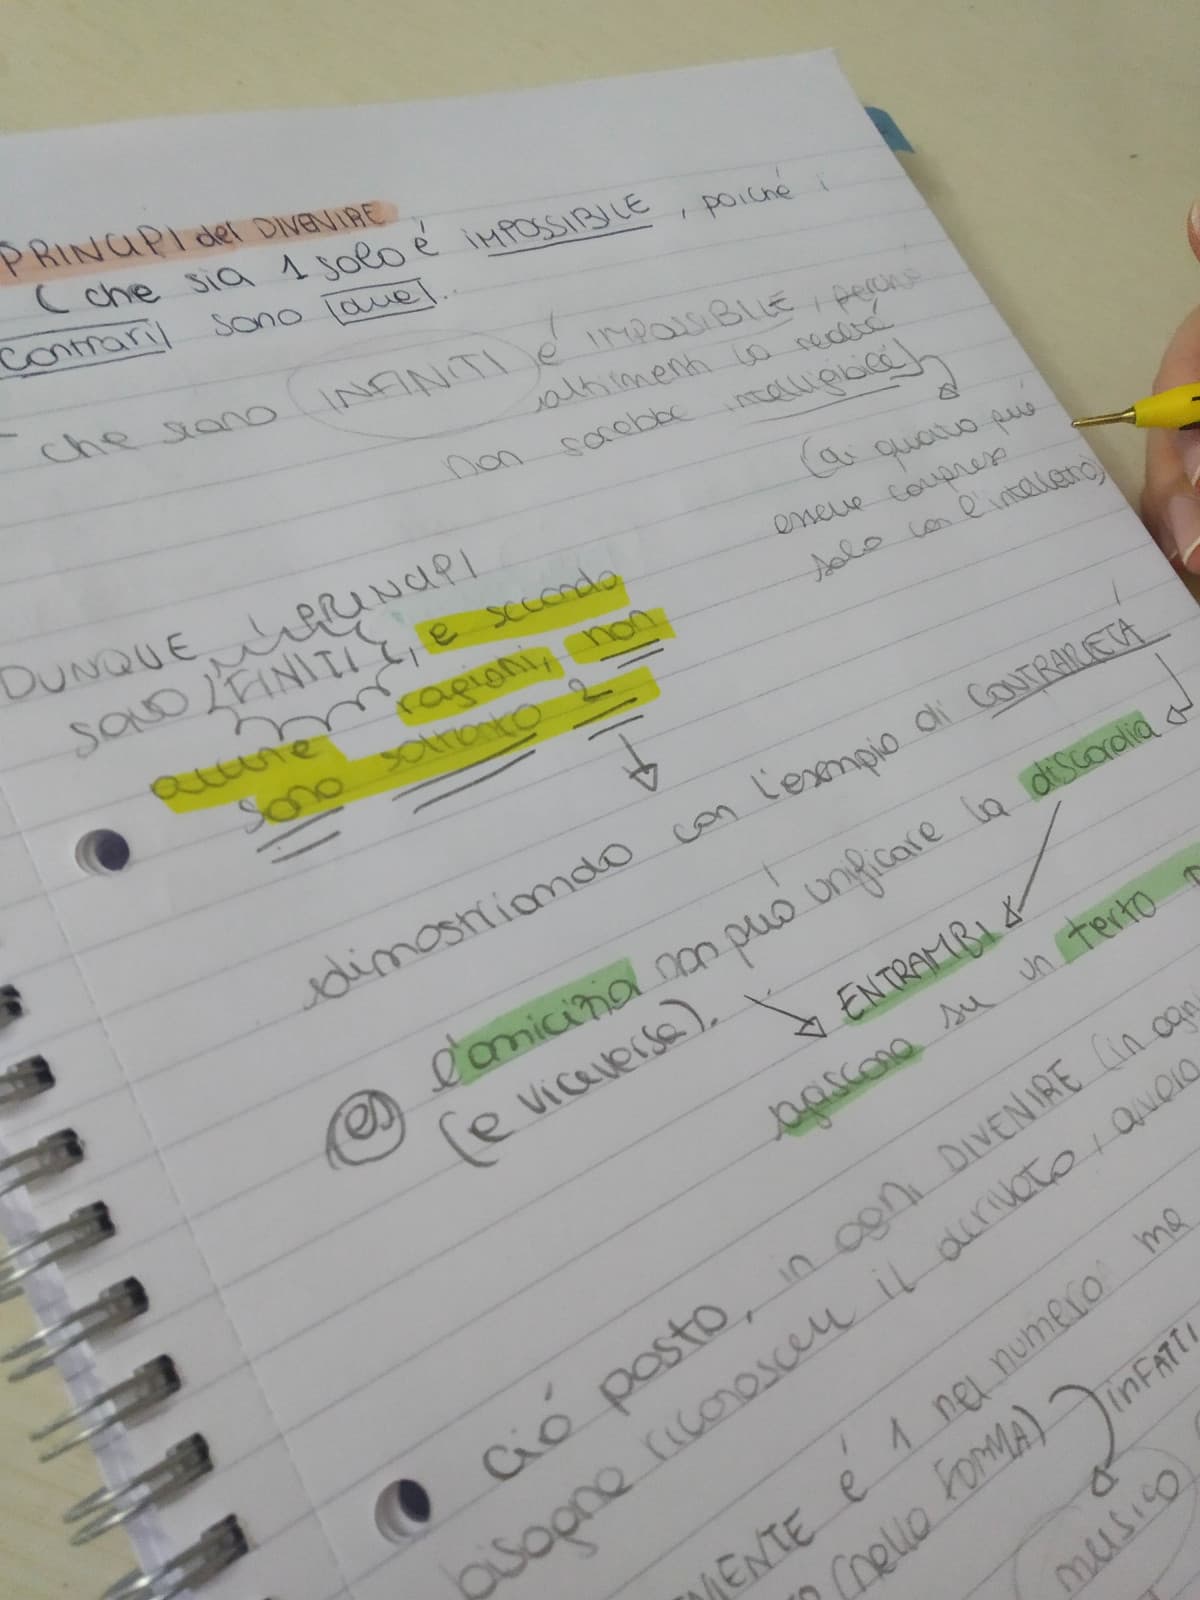 PRINCIPI del DIVENIRE
( che sia 1 solo é IMPOSSIBILE, poiché i
contrari sono due..
- che siano INFINITI é IMPOSSIBILE, perché
altrimenti la realtá
non sarebbe intelligibile)
(di quanto può
essere compreso
solo con l'intelletto)
DUNQUE i PRINCIPI
SONO FINITI, e secondo
alcune ragioni, non
sono soltanto 2
dimostriamolo con l'esempio di CONTRARIETÁ
es l'amicizia non puó unificare la discordia
(e viceversa). ENTRAMBI
agiscono su un terzo
ció posto, in ogni DIVENIRE (in ogni
bisogna riconoscere il derivato,
MENTE é 1 nel numero ma
(nella FORMA) INFATTI
musico